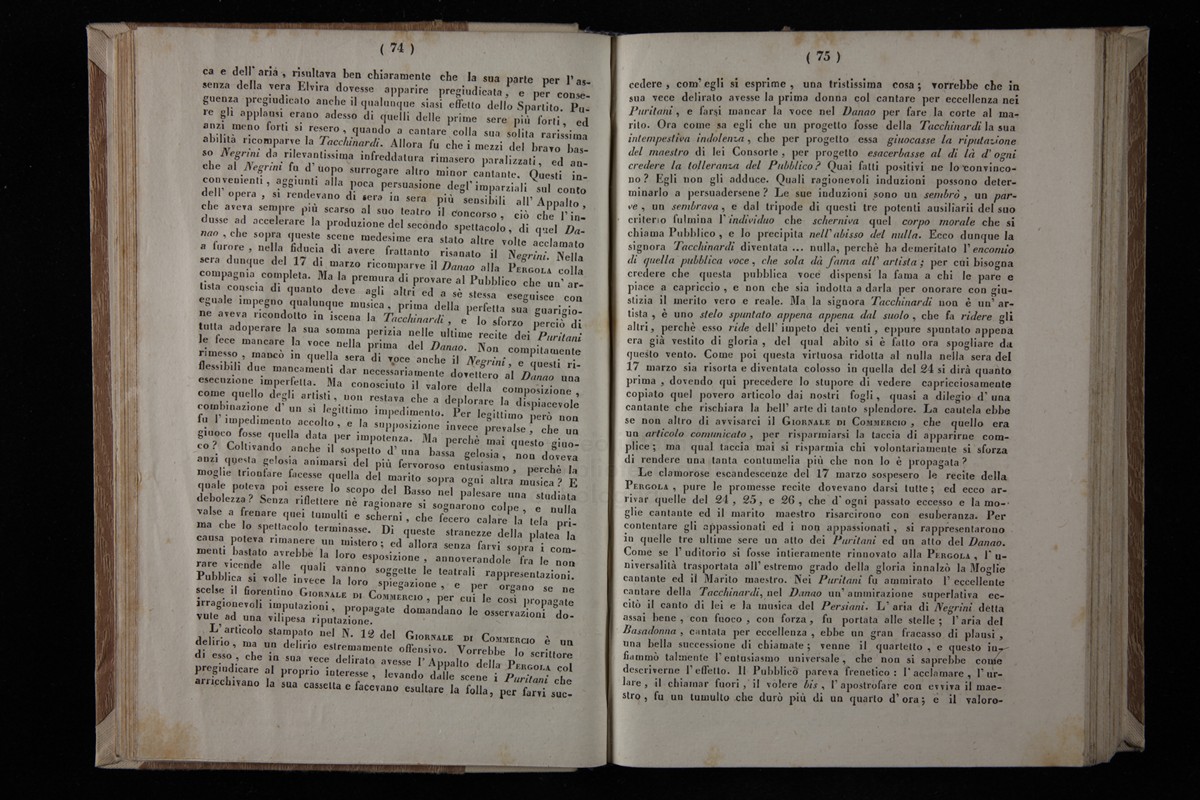 ( 74 )
ca e dell' aria , risultava ben chiaramente che la sua parte per l' as-
senza della vera Elvira dovesse apparire pregiudicata , e per conse-
guenza pregiudicato anche il qualunque siasi effetto dello Spartito. Pu-
re gli applausi erano adesso di quelli delle prime sere più forti , ed
anzi meno forti si resero , quando a cantare colla sua solita rarissima
abilità ricomparve la Tacchinardi. Allora fu che i mezzi del bravo bas-
so Negrini da rilevantissima infreddatura rimasero paralizzati , ed an-
che al Negrini fu d' uopo surrogare altro minor cantante. Questi in-
convenienti , aggiunti alla poca persuasione degl' imparziali sul conto
dell' opera , si rendevano di sera in sera più sensibili all' Appalto ,
che aveva sempre più scarso al suo teatro il concorso , ciò che l' in-
dusse ad accelerare la produzione del secondo spettacolo , di quel Da-
nao , che sopra queste scene medesime era stato altre volte acclamato
a furore , nella fiducia di avere frattanto risanato il Negrini. Nella
sera dunque del 17 di marzo ricomparve il Danao alla PERGOLA colla
compagnia completa. Ma la premura di provare al Pubblico che un' ar-
tista conscia di quanto deve agli altri ed a sè stessa eseguisce con
eguale impegno qualunque musica , prima della perfetta sua guarigio-
ne aveva ricondotto in iscena la Tacchinardi , e lo sforzo perciò di
tutta adoperare la sua somma perizia nelle ultime recite dei Puritani
le fece mancare la voce nella prima del Danao. Non compitamente
rimesso , mancò in quella sera di voce anche il Negrini , e questi ri-
flessibili due mancamenti dar necessariamente dovettero al Danao una
esecuzione imperfetta. Ma conosciuto il valore della composizione ,
come quello degli artisti , non restava che a deplorare la dispiacevole
combinazione d' un sì legittimo impedimento. Per legittimo però non
fu l' impedimento accolto , e la supposizione invece prevalse , che un
giuoco fosse quella data per impotenza. Ma perchè mai questo giuo-
co ? Coltivando anche il sospetto d' una bassa gelosia , non doveva
anzi questa gelosia animarsi del più fervoroso entusiasmo , perchè la
moglie trionfare facesse quella del marito sopra ogni altra musica ? E
quale poteva poi essere lo scopo del Basso nel palesare una studiata
debolezza ? Senza riflettere nè ragionare si sognarono colpe , e nulla
valse a frenare quei tumulti e scherni , che fecero calare la tela pri-
ma che lo spettacolo terminasse. Di queste stranezze della platea la
causa poteva rimanere un mistero ; ed allora senza farvi sopra i com-
menti bastato avrebbe la loro esposizione , annoverandole fra le non
rare vicende alle quali vanno soggette le teatrali rappresentazioni.
Pubblica si volle invece la loro spiegazione , e per organo se ne
scelse il fiorentino GIORNALE DI COMMERCIO , per cui le così propagate
irragionevoli imputazioni , propagate domandano le osservazioni do-
vute ad una vilipesa riputazione.
L' articolo stampato nel N. 12 del GIORNALE DI COMMERCIO è un
delirio , ma un delirio estremamente offensivo. Vorrebbe lo scrittore
di esso , che in sua vece delirato avesse l' Appalto della PERGOLA col
pregiudicare al proprio interesse , levando dalle scene i Puritani che
arricchivano la sua cassetta e facevano esultare la folla , per farvi suc-
( 75 )
cedere , com' egli si esprime , una tristissima cosa ; vorrebbe che in
sua vece delirato avesse la prima donna col cantare per eccellenza nei
Puritani , e farsi mancar la voce nel Danao per fare la corte al ma-
rito. Ora come sa egli che un progetto fosse della Tacchinardi la sua
intempestiva indolenza , che per progetto essa giuocasse la riputazione
del maestro di lei Consorte , per progetto esacerbasse al di là d' ogni
credere la tolleranza del Pubblico ? Quai fatti positivi ne lo convinco-
no ? Egli non gli adduce. Quali ragionevoli induzioni possono deter-
minarlo a persuadersene ? Le sue induzioni sono un sembrò , un par-
ve , un sembrava , e dal tripode di questi tre potenti ausiliarii del suo
criterio fulmina l' individuo che scherniva quel corpo morale che si
chiama Pubblico , e lo precipita nell' abisso del nulla. Ecco dunque la
signora Tacchinardi diventata ... nulla, perchè ha demeritato l' encomio
di quella pubblica voce , che sola dà fama all' artista ; per cui bisogna
credere che questa pubblica voce dispensi la fama a chi le pare e
piace a capriccio , e non che sia indotta a darla per onorare con giu-
stizia il merito vero e reale. Ma la signora Tacchinardi non è un' ar-
tista , è uno stelo spuntato appena appena dal suolo , che fa ridere gli
altri , perchè esso ride dell' impeto dei venti , eppure spuntato appena
era già vestito di gloria , del qual abito si è fatto ora spogliare da
questo vento. Come poi questa virtuosa ridotta al nulla nella sera del
17 marzo sia risorta e diventata colosso in quella del 24 si dirà quanto
prima , dovendo qui precedere lo stupore di vedere capricciosamente
copiato quel povero articolo dai nostri fogli , quasi a dilegio d' una
cantante che rischiara la bell' arte di tanto splendore. La cautela ebbe
se non altro di avvisarci il GIORNALE DI COMMERCIO , che quello era
un articolo comunicato , per risparmiarsi la taccia di apparirne com-
plice ; ma qual taccia mai si risparmia chi volontariamente si sforza
di rendere una tanta contumelia più che non lo è propagata ?
Le clamorose escandescenze del 17 marzo sospesero le recite della
PERGOLA , pure le promesse recite dovevano darsi tutte ; ed ecco ar-
rivar quelle del 24 , 25 , e 26 , che d' ogni passato eccesso e la mo-
glie cantante ed il marito maestro risarcirono con esuberanza. Per
contentare gli appassionati ed i non appassionati , si rappresentarono
in quelle tre ultime sere un atto dei Puritani ed un atto del Danao.
Come se l' uditorio si fosse intieramente rinnovato alla PERGOLA , l' u-
niversalità trasportata all' estremo grado della gloria innalzò la Moglie
cantante ed il Marito maestro. Nei Puritani fu ammirato l' eccellente
cantare della Tacchinardi, nel Danao un' ammirazione superlativa ec-
citò il canto di lei e la musica del Persiani. L' aria di Negrini detta
assai bene , con fuoco , con forza , fu portata alle stelle ; l' aria del
Basadonna , cantata per eccellenza , ebbe un gran fracasso di plausi ,
una bella successione di chiamate ; venne il quartetto , e questo in-
fiammò talmente l' entusiasmo universale , che non si saprebbe come
descriverne l' effetto. Il Pubblico pareva frenetico : l' acclamare , l' ur-
lare , il chiamar fuori , il volere bis , l' apostrofare con evviva il mae-
stro , fu un tumulto che durò più di un quarto d' ora ; e il valoro-